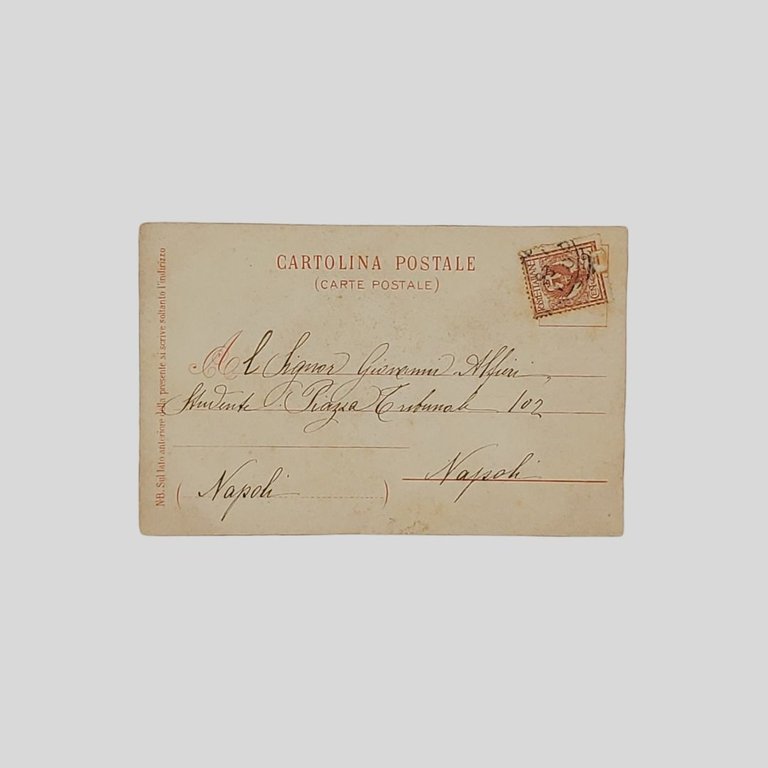 CARTOLINA POSTALE
(CARTE POSTALE)
Al Signor Giovanni Alfieri
Studente Piazza Tribunali 102
Napoli
(Napoli)
NB. Sul lato anteriore della presente si scrive soltanto l'indirizzo